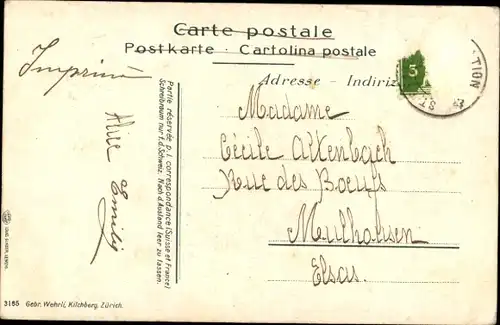 Carte postale
Postkarte · Cartolina postale
Adresse - Indiriz
3
TION
ST
Imprimé
Madame
Cécile Altenbach
Rue des Boeufs
Mulhausen
Elsas.
Emilie
Partie réservée p. l. correspondance (Suisse et France)
Schreibraum nur f. d. Schweiz. Nach d. Ausland leer zu lassen.
3165 Gebr. Wehrli, Kilchberg, Zürich.